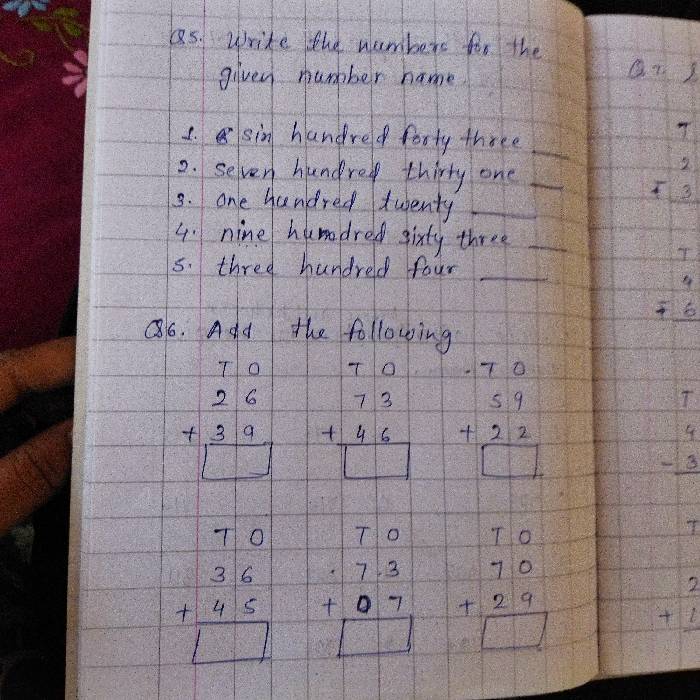 Q5. Write the numbers for the
given number name.
1. sin hundred forty three ___
2. seven hundred thirty one ___
3. one hundred twenty ___
4. nine humdred sixty three ___
5. three hundred four ___
Q6. Add the following
T O T O T O
2 6 7 3 5 9
+ 3 9 + 4 6 + 2 2
T O T O T O
3 6 7 3 7 0
+ 4 5 + 0 7 + 2 9
Q7.
T
2
+ 3
T
4
+ 6
T
4
- 3
T
2
+